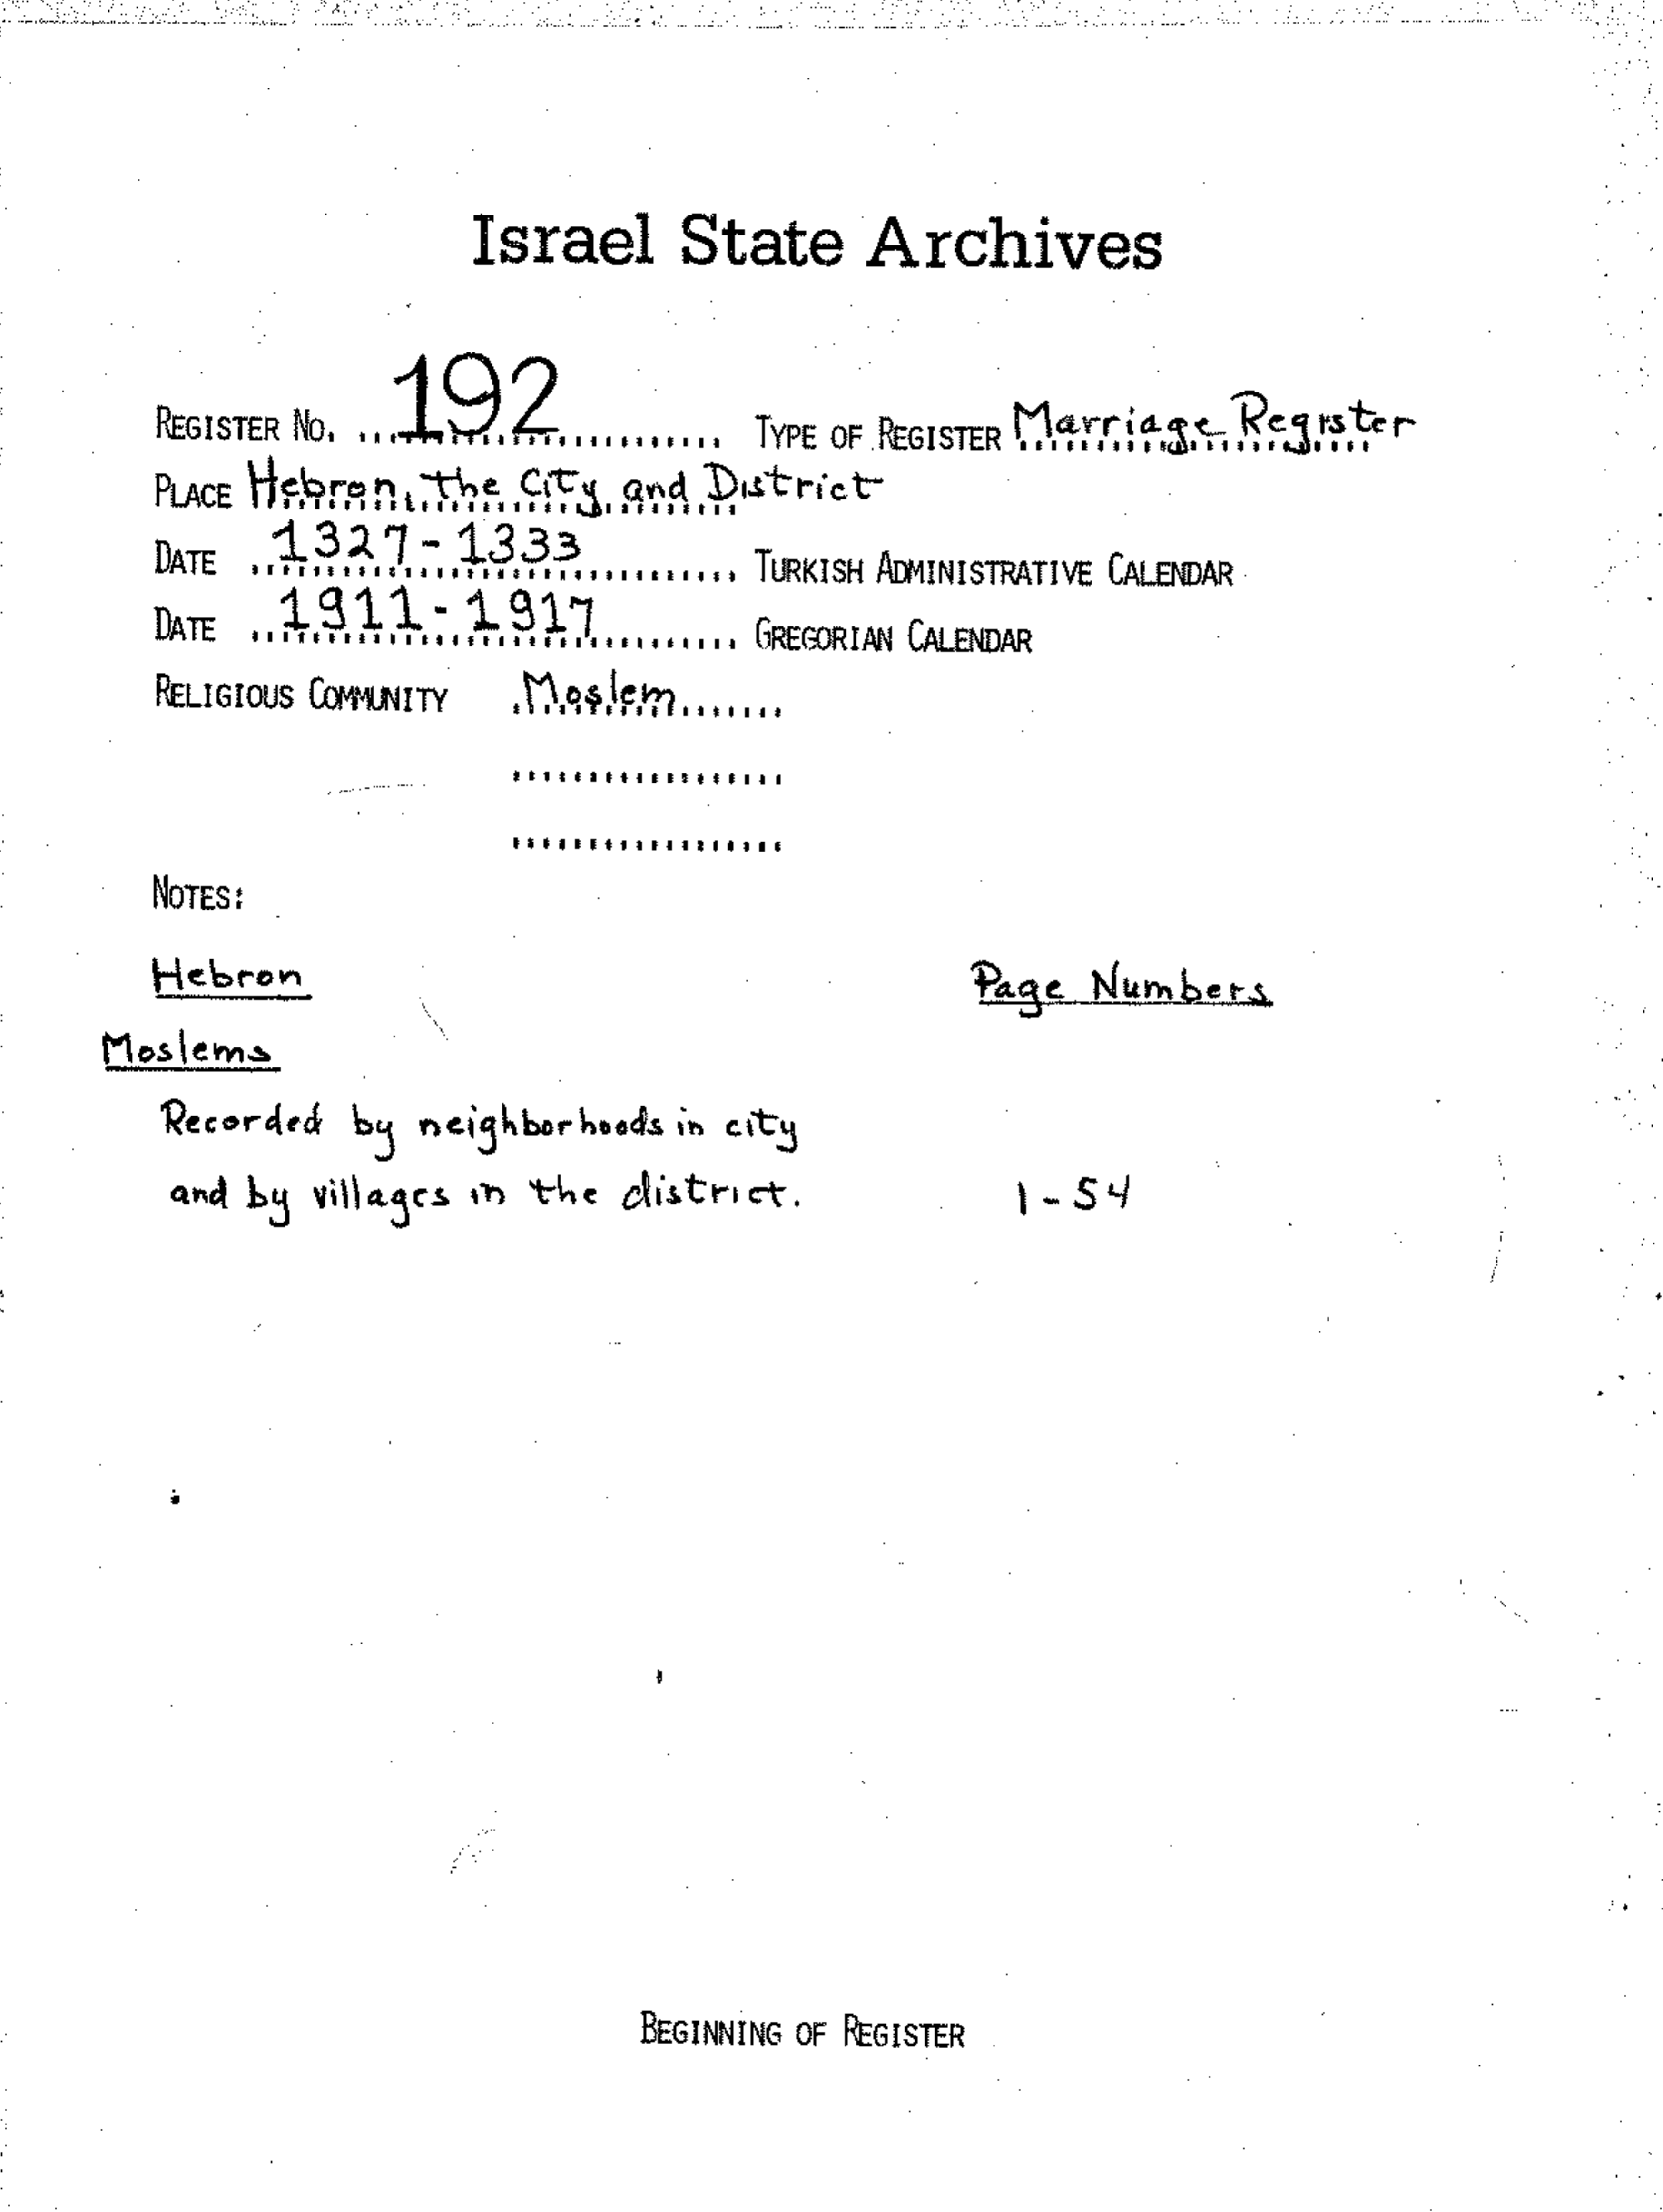 Israel State Archives
REGISTER NO. 192 TYPE OF REGISTER Marriage Register
PLACE Hebron, the City and District
DATE 1327-1333 TURKISH ADMINISTRATIVE CALENDAR
DATE 1911-1917 GREGORIAN CALENDAR
RELIGIOUS COMMUNITY Moslem
NOTES:
Hebron Page Numbers
Moslems
Recorded by neighborhoods in city
and by villages in the district. 1-54
BEGINNING OF REGISTER